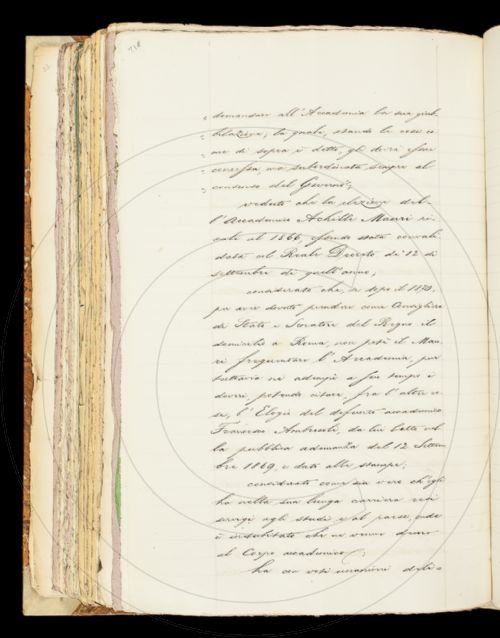 718
„ domandare all'Accademia la sua giub-
„ bilazione; la quale, stando le cose co-
„ me di sopra è detto, gli dovrà essere
„ concessa, ma subordinata sempre al
„ consenso del Governo";
veduto che la elezione del-
l'Accademico Achille Mauri ri-
cale al 1866, essendo stata conval-
data col Reale Decreto de' 12 di
settembre di quell'anno;
considerato che, se dopo il 1870,
per aver dovuto prendere come Consigliere
di Stato e Senatore del Regno il
domicilio a Roma, non potè il Mau-
ri frequentare l'Accademia, pur
tuttavia ne adempiè a suo tempo i
doveri, potendo citare, fra l'altre co-
se, l'Elogio del defunto accademico
Francesco Ambrosoli, da lui letto nel-
la pubblica adunanza del 12 Settem-
bre 1869, e dato alle stampe;
considerato come sia vero ch'egli
ha nella sua lunga carriera resi
servigi agli studi e al paese, onde
è indubitato che ne venne decoro
al Corpo accademico;
ha con voti unanimi deli-